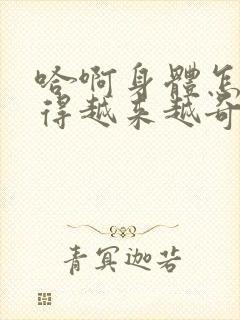 哈啊身體怎
得越来越奇
青冥迦若